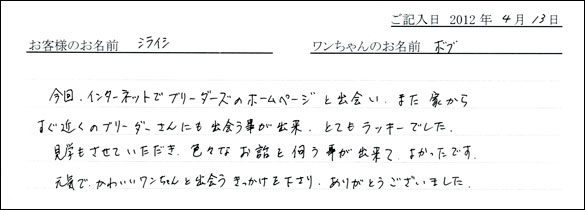 ご記入日 2012 年 4 月 13 日
お客様のお名前 シライシ ワンちゃんのお名前 ボブ
今回、インターネットでブリーダーズのホームページと出会い、また 家から
すぐ近くのブリーダーさんにも出会う事が出来、とてもラッキーでした。
見学もさせていただき、色々なお話を伺う事が出来て、よかったです。
元気で、かわいいワンちゃんと出会うきっかけを下さり、ありがとうございました。